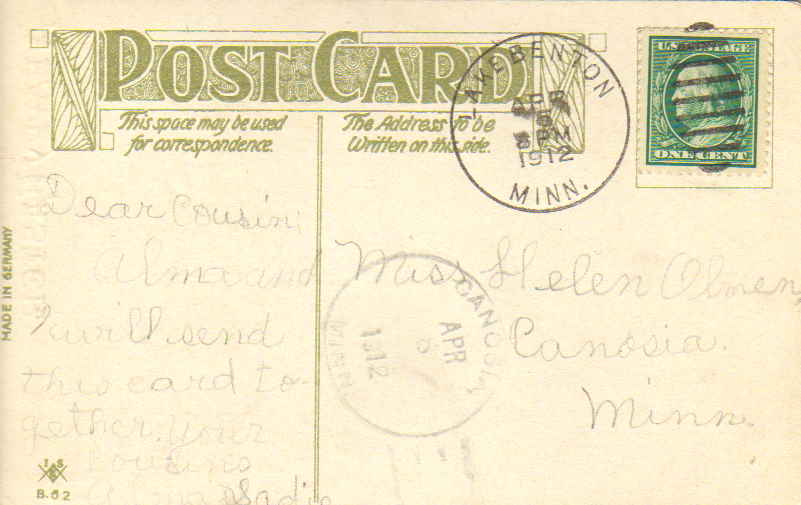 POST CARD
This space may be used
for correspondence.
The Address to be
Written on this side.
LAKE BENTON
APR
5
8 PM
1912
MINN.
U.S. POSTAGE
ONE CENT
MADE IN GERMANY
Dear Cousin:
Alma and
I will send
this card to-
gether. your
cousins
Alma Sadie
Miss Helen Olmen,
Canosia.
Minn.
CANOSIA
APR
6
1912
MINN
I S
B.62